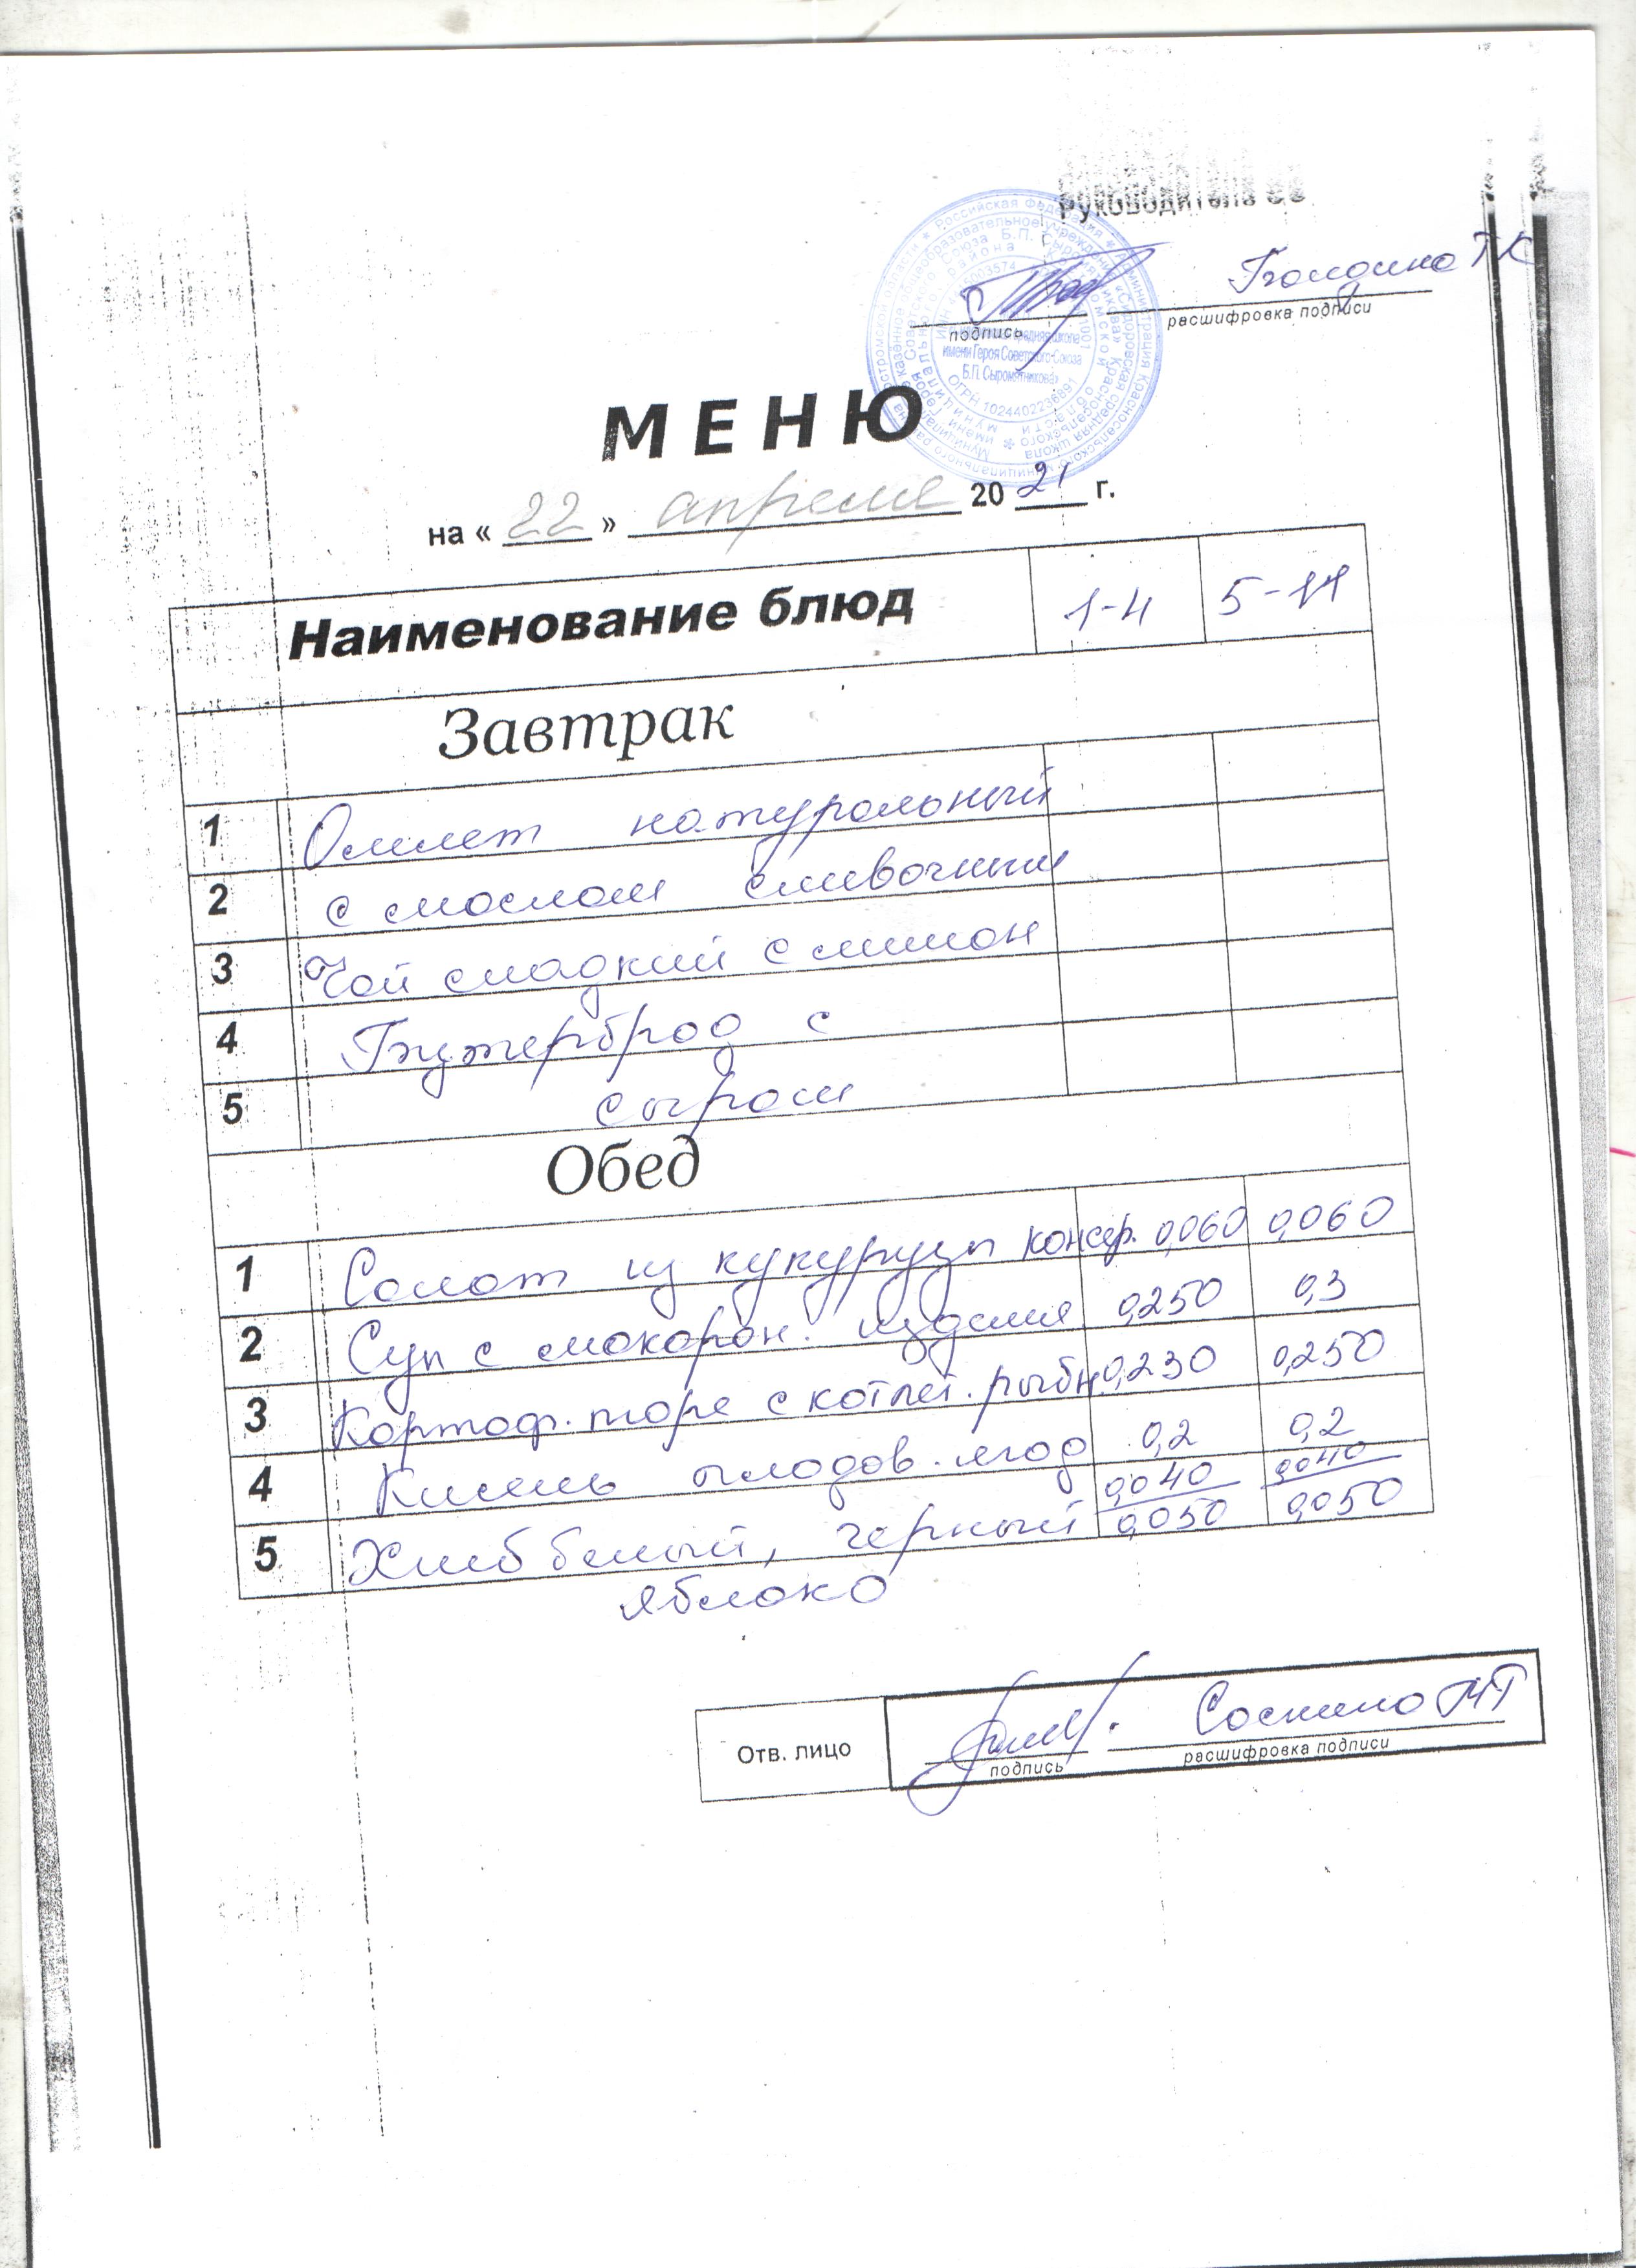 Руководитель
подпись
расшифровка подписи
МЕНЮ
на « 22 » апреля 20 21 г.
Наименование блюд 1-4 5-11
Завтрак
1 Омлет натуральный
2 с маслом сливочным
3 Чай сладкий с лимон
4 Бутерброд с
5 сыром
Обед
1 Салат из кукурузы консер. 0,060 0,060
2 Суп с макарон. изделия 0,250 0,3
3 Картоф. пюре с котлет. рыбн. 0,230 0,250
4 Кисель плодов. ягод 0,2 0,2
5 Хлеб белый, черный 0,040 0,040
0,050 0,050
яблоко
Отв. лицо
Соснина МТ
подпись расшифровка подписи